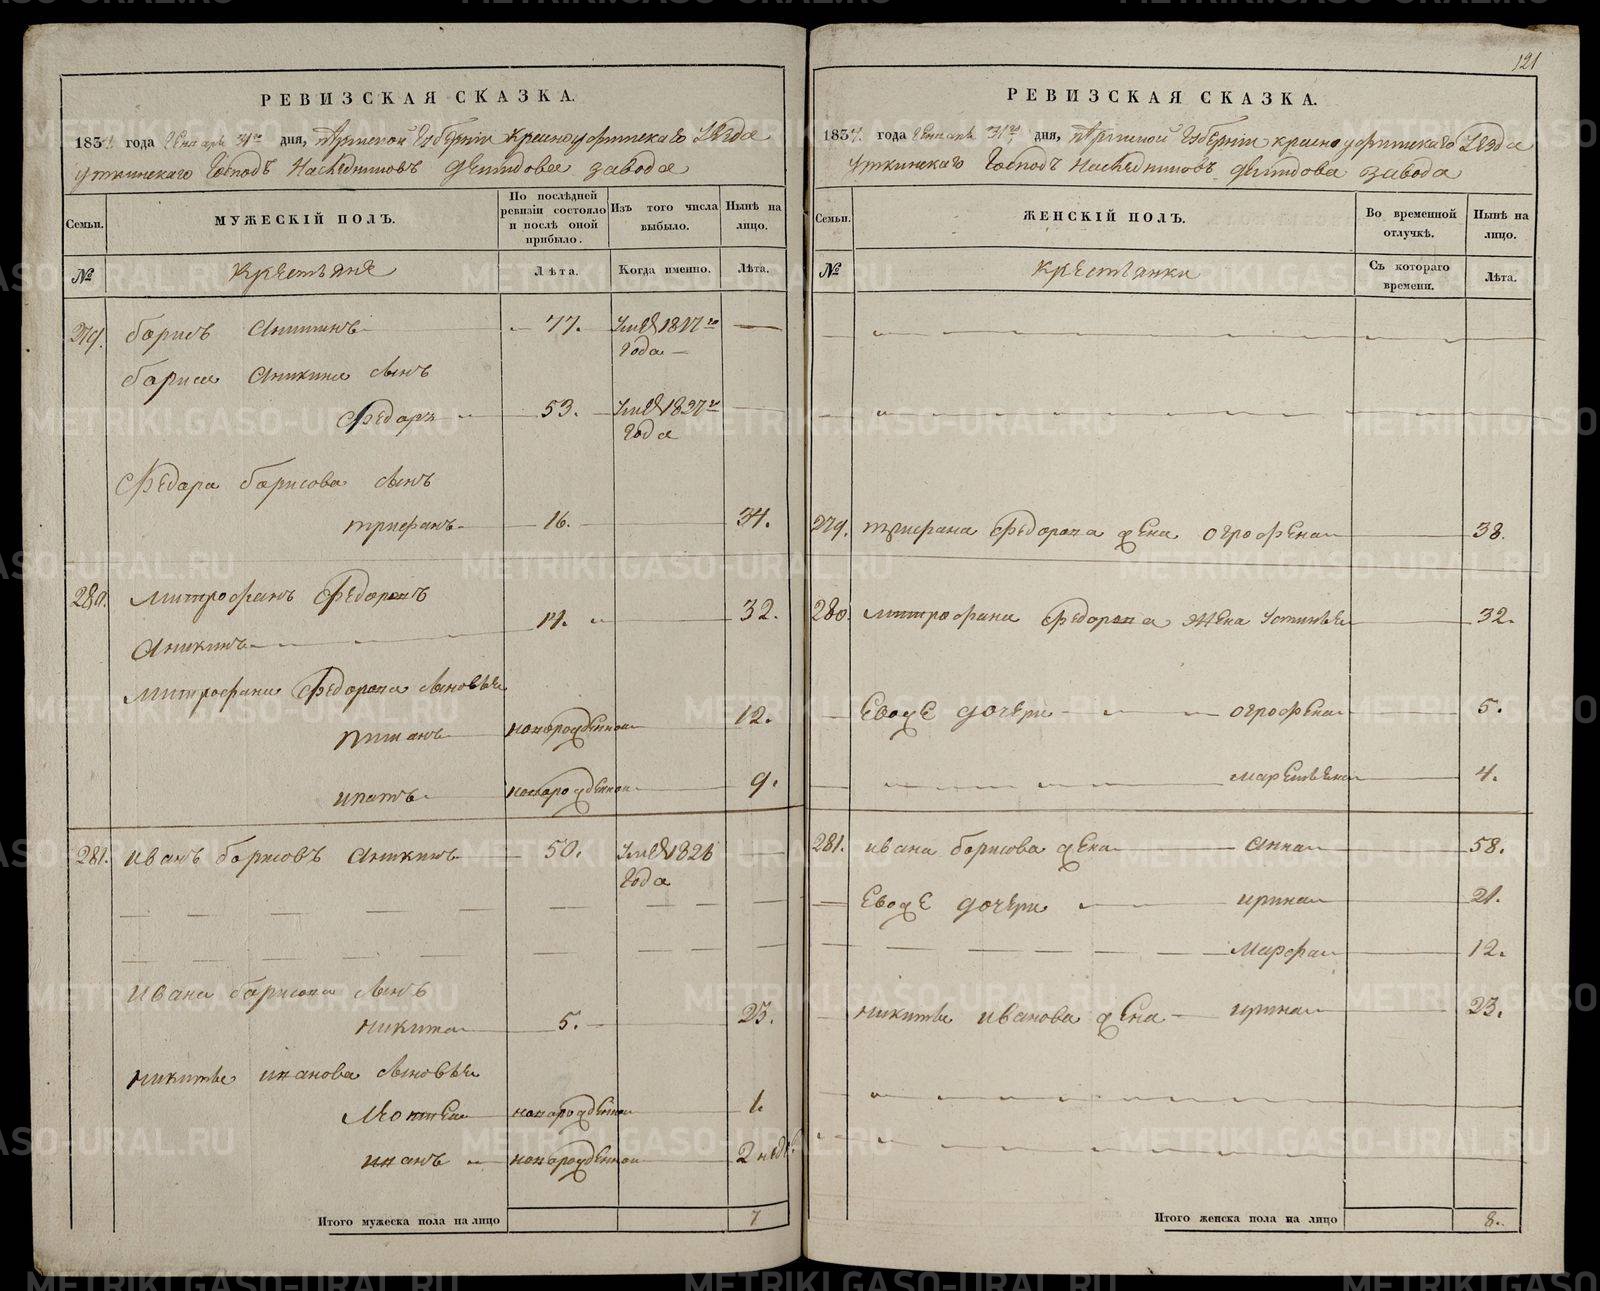 121
РЕВИЗСКАЯ СКАЗКА.
1834 года Генваря 31го дня, Пермской Губернии Красноуфимскаго Уезда
Уткинскаго Господъ Наследниковъ Демидова завода
Семьи.
МУЖЕСКІЙ ПОЛЪ.
По послѣдней ревизіи состояло и послѣ оной прибыло.
Изъ того числа выбыло.
Нынѣ на лицо.
№
Крестьяне
Лѣта.
Когда именно.
Лѣта.
279. Борисъ Аникинъ 77. 1817го
года
Бориса Аникина сынъ
Федоръ 53. 1827го
года
Федора Борисова сынъ
Трифанъ 16. 34.
280. Митрофанъ Федоровъ
Аникинъ 14. 32.
Митрофана Федорова сыновья
новорожденной 12.
Ипатъ новорожденной 9.
281. Иванъ Борисовъ Аникинъ 50. 1826
года
Ивана Борисова сынъ
Никита 5. 23.
Никиты Иванова сыновья
новорожденной 1.
Иванъ новорожденной 2 нед.
Итого мужеска пола на лицо 7
РЕВИЗСКАЯ СКАЗКА.
1834 года Генваря 31го дня, Пермской Губернии Красноуфимскаго Уезда
Уткинскаго Господъ Наследниковъ Демидова завода
Семьи.
ЖЕНСКІЙ ПОЛЪ.
Во временной отлучкѣ.
Нынѣ на лицо.
№
Крестьянки
Съ котораго времени.
Лѣта.
279. Трифана Федорова жена Огрофена 38.
280. Митрофана Федорова жена Устинья 32.
Евоже дочери Огрофена 5.
Маремьяна 4.
281. Ивана Борисова жена Анна 58.
Евоже дочери Ирина 21.
Марфа 12.
Никиты Иванова жена Ирина 23.
Итого женска пола на лицо 8.
METRIKI.GASO-URAL.RU